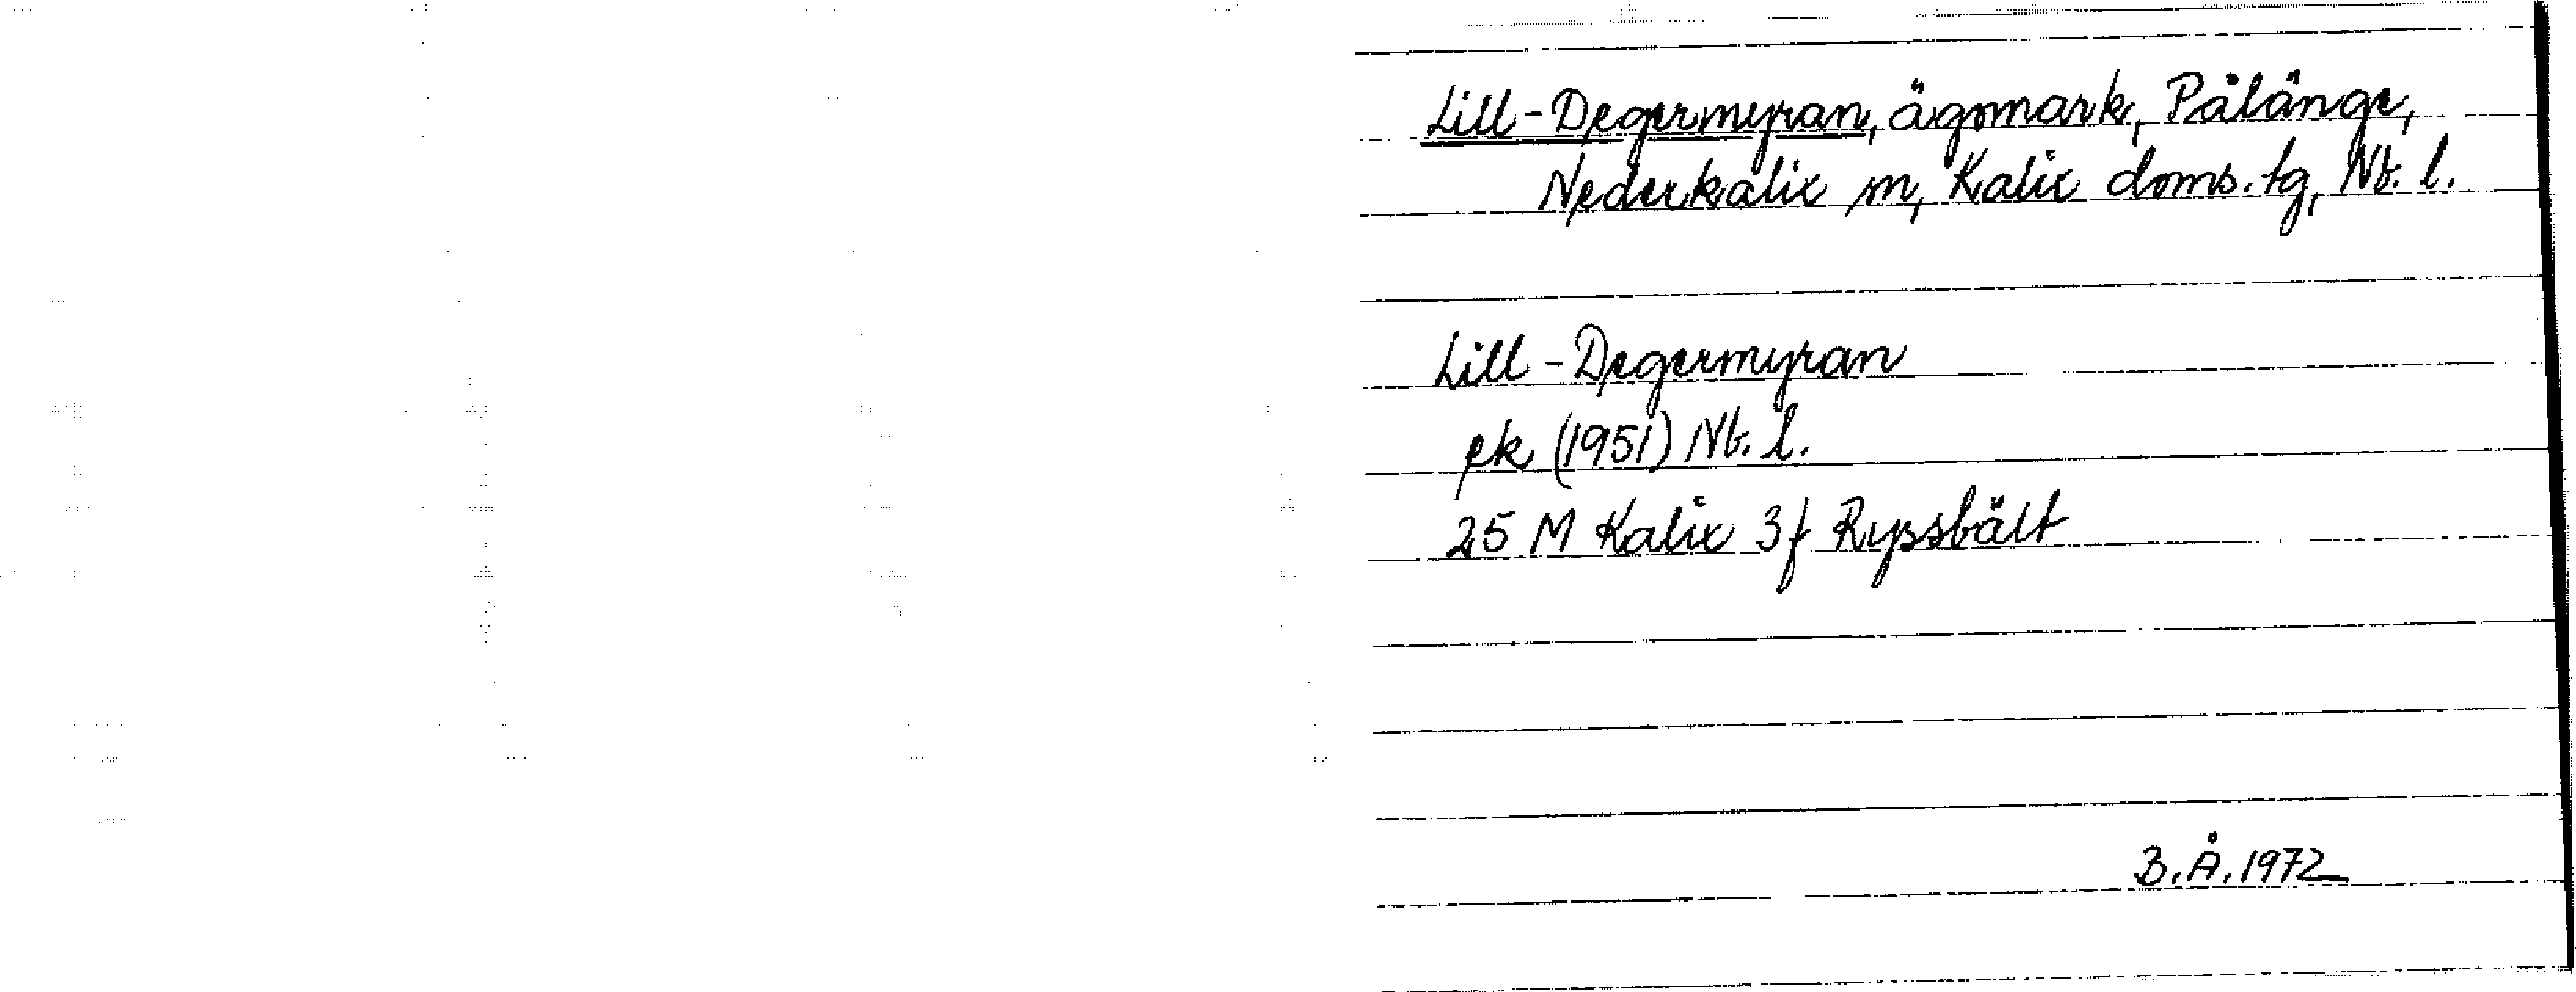 Lill-Degermyran, ägomark, Pålänge,
Nederkalix sn, Kalix doms. tg, Nb. l.
Lill-Degermyran
ek (1951) Nb. l.
25 M Kalix 3f Ryssbält
B.Å. 1972